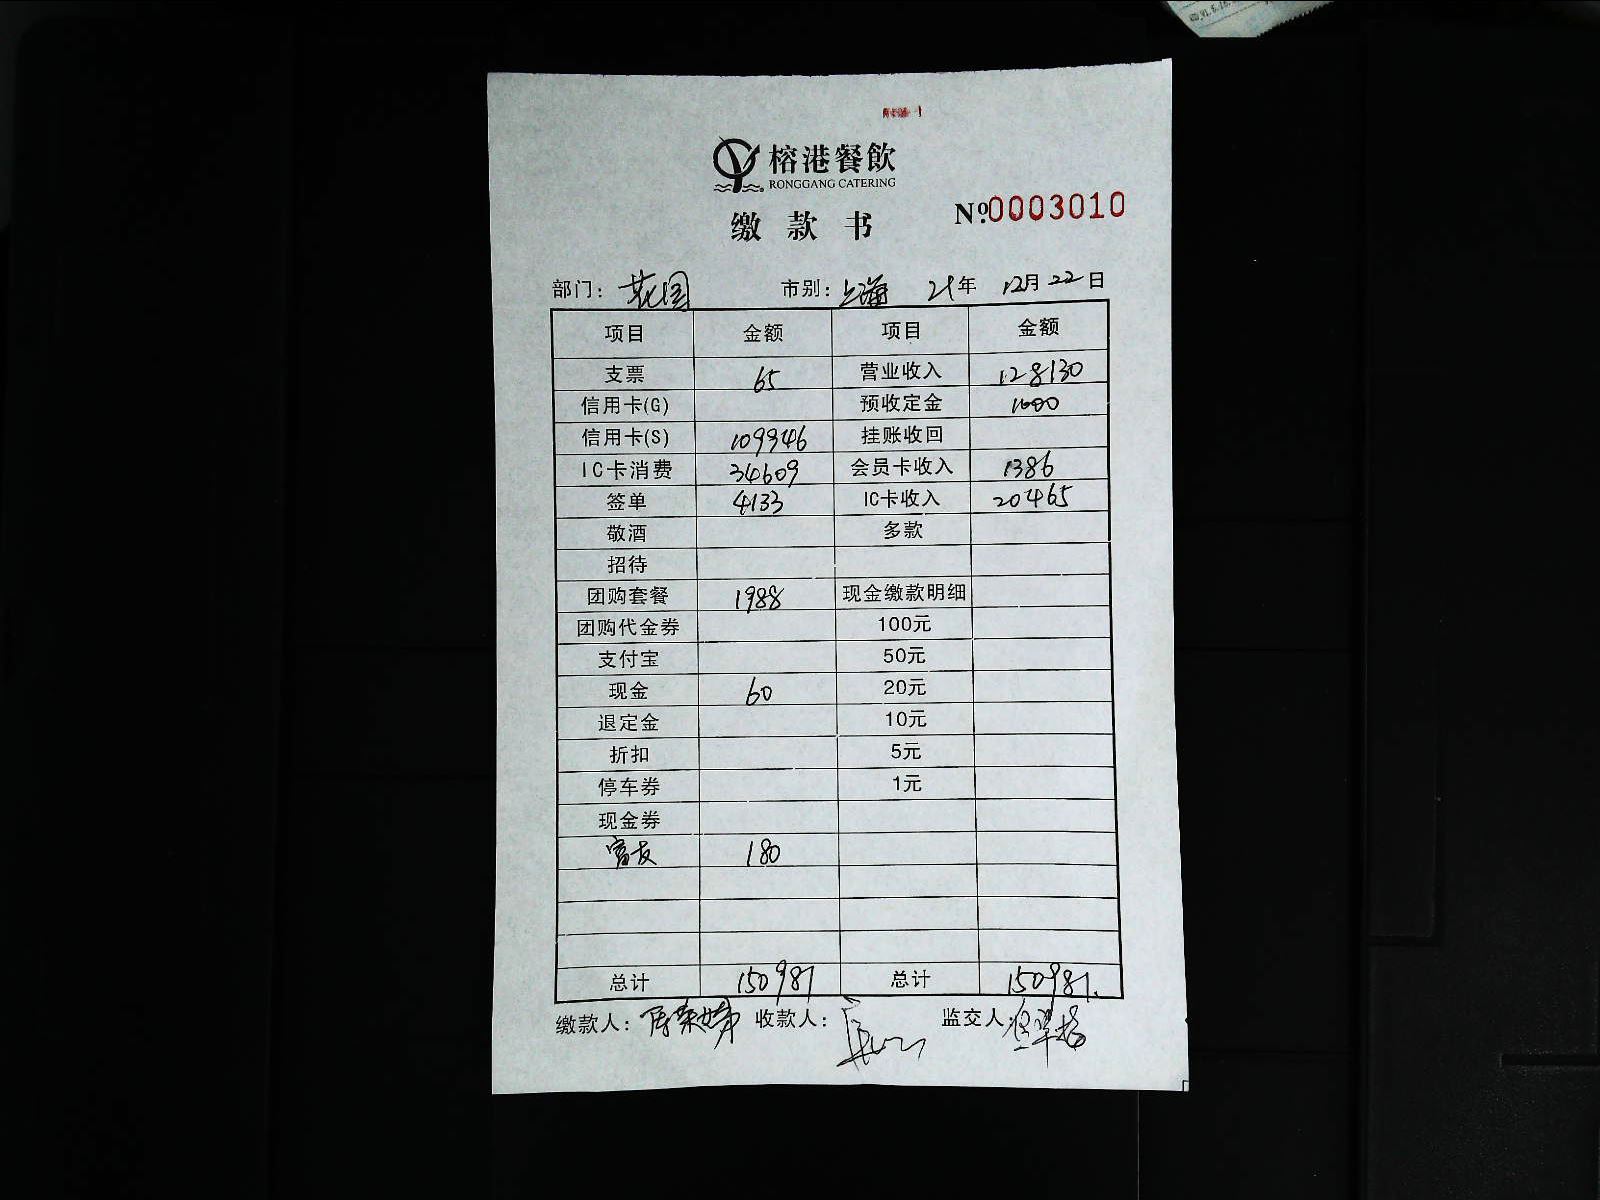 榕港餐飲
RONGGANG CATERING
缴款书 №0003010
部门: 花园 市别: 上海 21年 12月22日
项目 金额 项目 金额
支票 65 营业收入 128130
信用卡(G) 预收定金 1000
信用卡(S) 109946 挂账收回
IC卡消费 34609 会员卡收入 1386
签单 4133 IC卡收入 20465
敬酒 多款
招待
团购套餐 1988 现金缴款明细
团购代金券 100元
支付宝 50元
现金 60 20元
退定金 10元
折扣 5元
停车券 1元
现金券
富友 180
总计 150981 总计 150981.
缴款人: 收款人: 监交人: